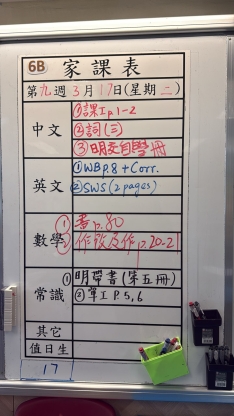 6B 家課表
第九週3月17日(星期二)
中文
①課工p.1-2
②詞(三)
③明交自學冊
英文
①WB p.8 + Corr.
②SWS (2 pages)
數學
①書p.80
②作改及作p.20-21
常識
①明帶書(第五冊)
②單工 P.5,6
其它
值日生
17